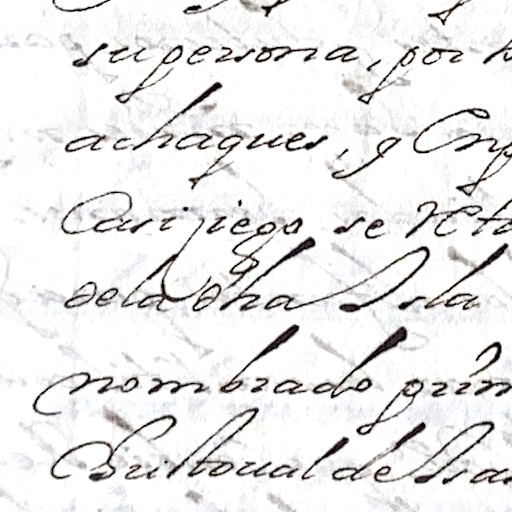 su persona, por
achaques, y
Casi ciego se
de la dha Isla
nombrado prim
Cristoual de